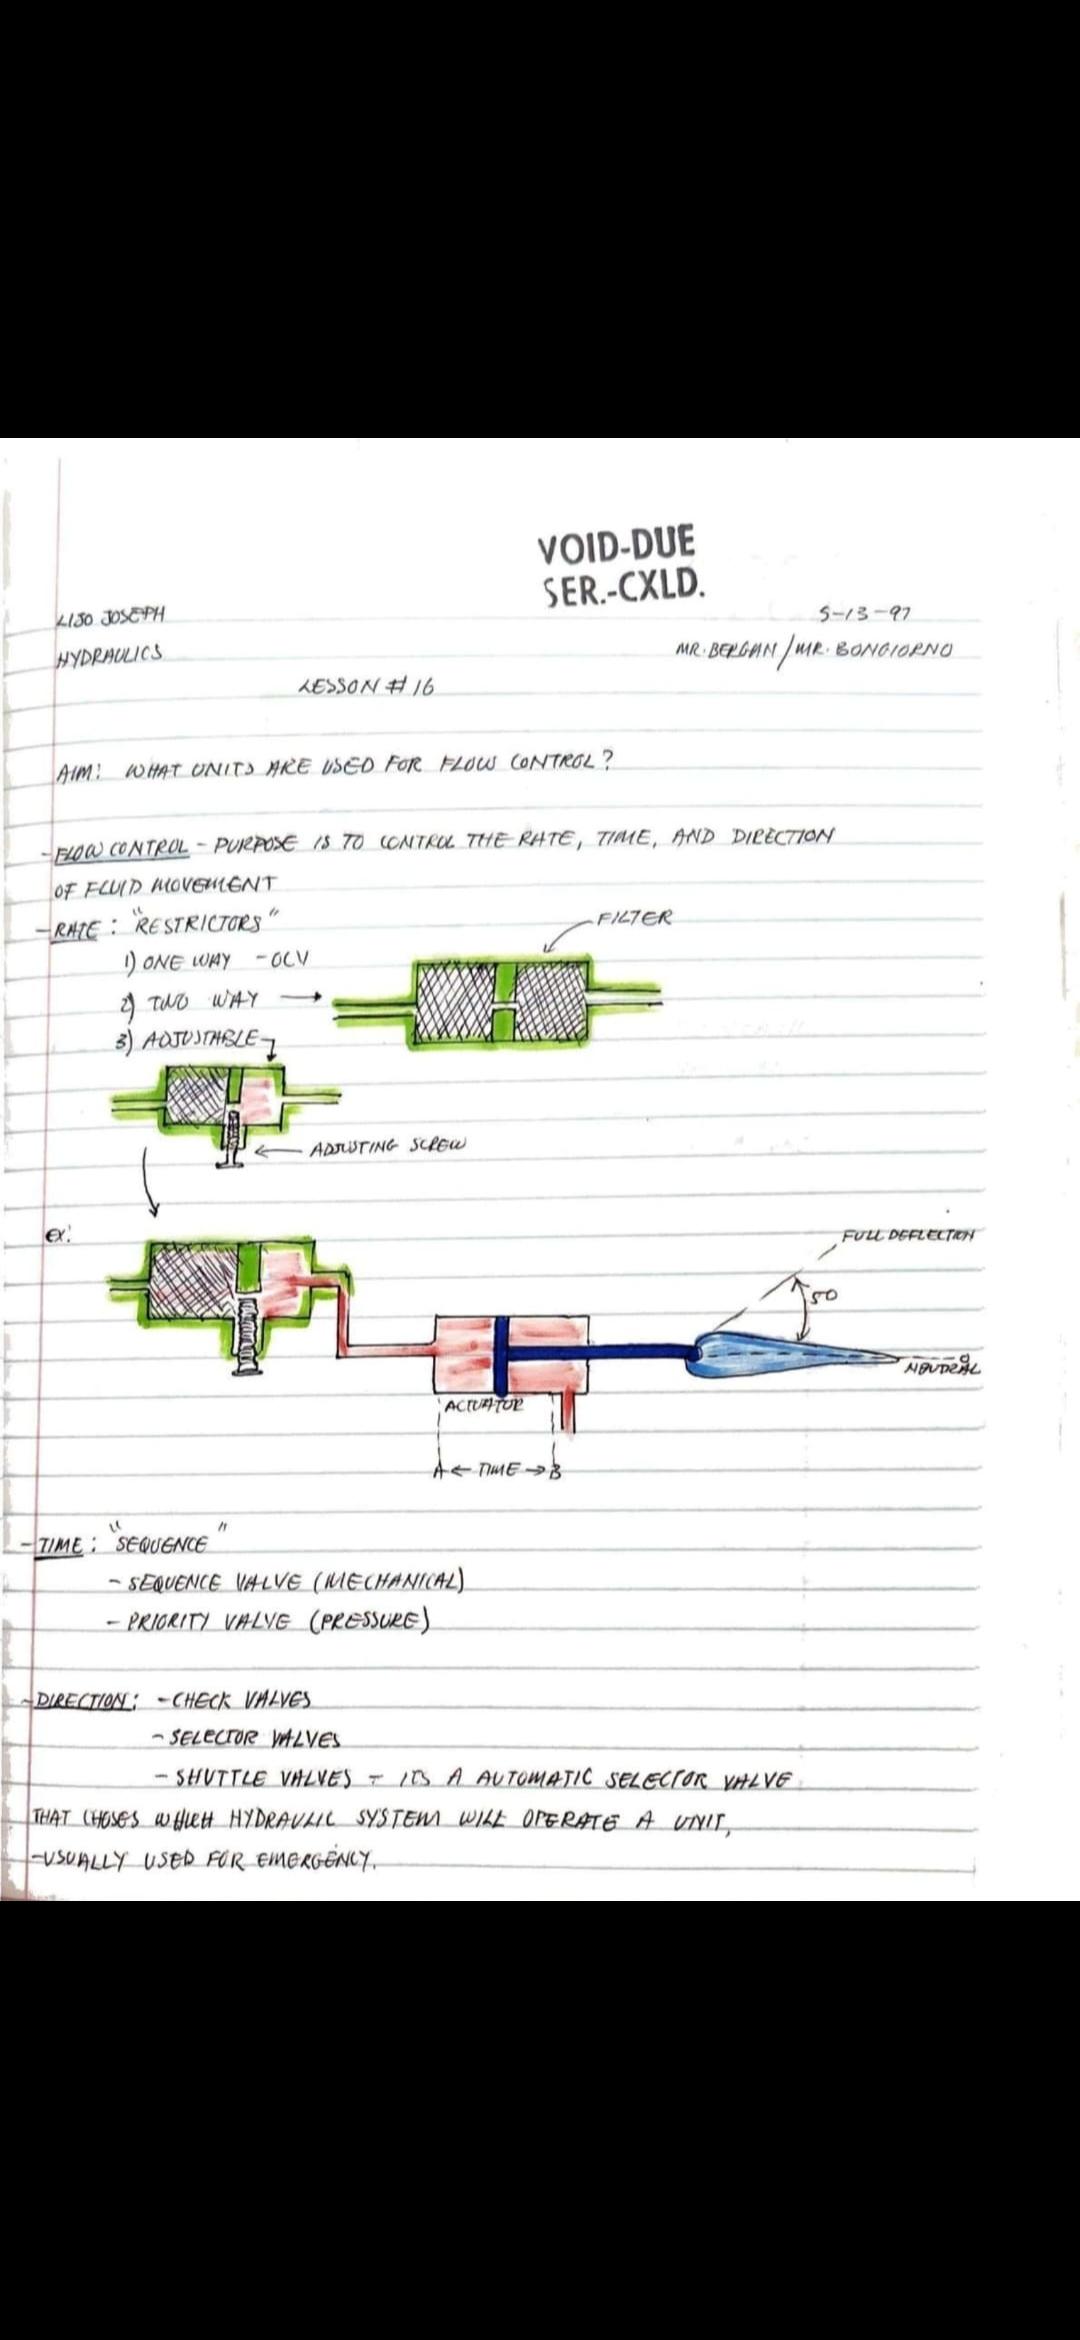 VOID-DUE
SER.-CXLD.
LIJO JOSEPH
5-13-97
HYDRAULICS
MR. BERGAN / MR. BONGIORNO
LESSON # 16
AIM: WHAT UNITS ARE USED FOR FLOW CONTROL?
- FLOW CONTROL - PURPOSE IS TO CONTROL THE RATE, TIME, AND DIRECTION
OF FLUID MOVEMENT
- RATE: "RESTRICTORS"
FILTER
1) ONE WAY - OCV
2) TWO WAY →
3) ADJUSTABLE
← ADJUSTING SCREW
EX:
FULL DEFLECTION
50
NEUTRAL
ACTUATOR
A ← TIME → B
- TIME: "SEQUENCE"
- SEQUENCE VALVE (MECHANICAL)
- PRIORITY VALVE (PRESSURE)
- DIRECTION: - CHECK VALVES
- SELECTOR VALVES
- SHUTTLE VALVES - ITS A AUTOMATIC SELECTOR VALVE
THAT CHOSES WHICH HYDRAULIC SYSTEM WILL OPERATE A UNIT,
- USUALLY USED FOR EMERGENCY.